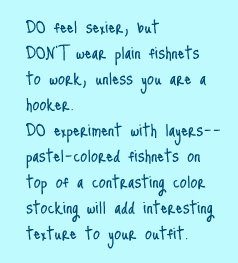 DO feel sexier, but
DON'T wear plain fishnets
to work, unless you are a
hooker.
DO experiment with layers--
pastel-colored fishnets on
top of a contrasting color
stocking will add interesting
texture to your outfit.